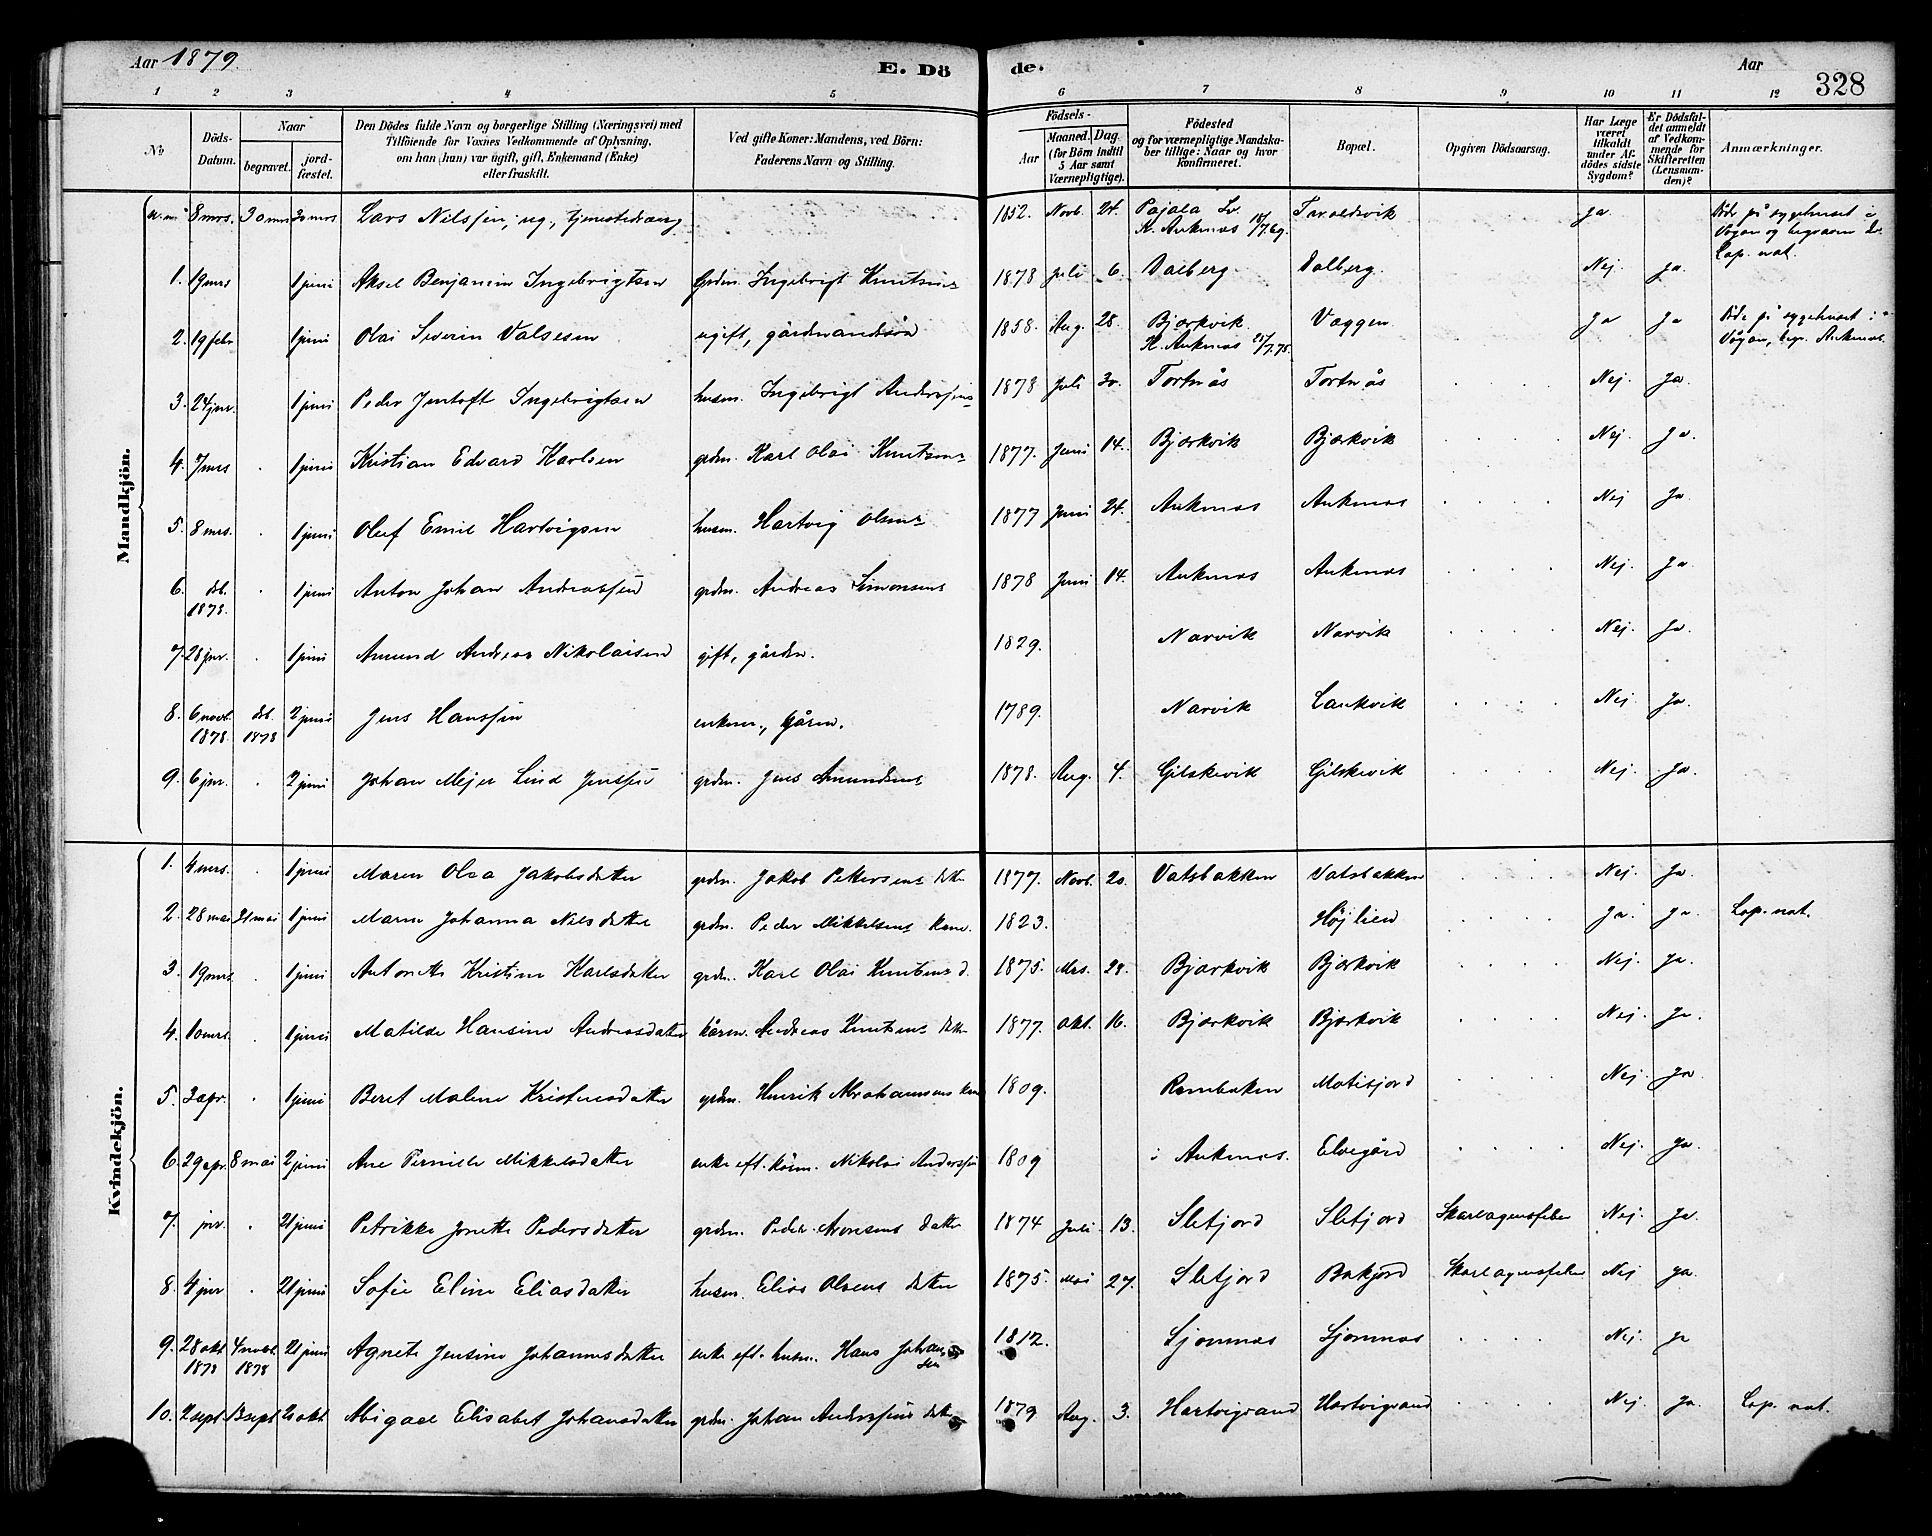 Aar 1879. E. Dö de. Aar 328
1 2 3 4 5 6 7 8 9 10 11 12
No Döds-Datum. Naar begravet. jordfæstet. Den Dödes fulde Navn og borgerlige Stilling (Næringsvei) med Tilföiende for Voxnes Vedkommende af Oplysning, om han (hun) var ugift, gift, Enkemand (Enke) eller fraskilt. Ved gifte Koner: Mandens, ved Börn: Faderens Navn og Stilling. Födsels- Aar Maaned. Dag. (for Börn indtil 5 Aar samt Værnepligtige). Födested og for værnepligtige Mandskaber tillige: Naar og hvor konfirmeret. Bopæl. Opgiven Dödsaarsag. Har Læge været tilkaldt under Afdödes sidste Sygdom? Er Dödsfaldet anmeldt af Vedkommende for Skifteretten (Lensmanden)? Anmærkninger.
Mandkjön.
8 mrs. 30 mrs 30 mrs Lars Nilssen, ug., tjenestedreng 1852. Novb. 24. Pajala Sv. K. Ankenæs 18/7 69. Taraldsvik ja Døde på sygehuset i Vågan og begraven der. Cop. nat.
1. 19 mrs 1 juni Aksel Benjamin Ingebrigtsen Grdm. Ingebrigt Knutsens 1878 juli 6. Dalberg Dalberg. Nej. ja.
2. 19 febr 1 juni Olai Severin Valsesen ugift, gårdmandssøn 1858. Aug. 28. Bjerkvik K. Ankenæs 25/7 75. Vaggen ja ja Døde på sygehuset i Vågan, begr. Ankenæs.
3. 24 jnr. 1 juni Peder Jentoft Ingebrigtsen husm. Ingebrigt Anderssens 1878 juli 30. Tortnås Tortnås Nej. ja.
4. 7 mrs . 1 juni Kristian Edvard Karlsen grdm. Karl Olai Knutsens 1877. Juni 14. Bjerkvik Bjerkvik Nej. ja.
5. 8 mrs. . 1 juni Oluf Emil Hartvigsen husm. Hartvig Olsens 1877 Juni 24. Ankenæs Ankenæs Nej ja.
6. db. 1878. . 1 juni Anton Johan Andreassen grdm. Andreas Simonsens 1878 Juni 14. Ankenæs Ankenæs Nej. ja.
7. 28 jnr. . 1 juni Amund Andreas Nikolaisen gift, gårdm. 1829. Narvik Narvik Nej. ja.
8. 6 novb. 1878. db. 1878 2 juni Jens Hanssen enkem., kårm. 1789. Narvik Lankvik Nej. ja.
9. 6 jnr. . 2 juni Johan Mejer Lind Jenssen grdm. Jens Amundsens 1878. Aug. 4. Gilskevik Gilskevik Nej. ja.
Kvindekjön.
1. 4 mrs. . 1 juni Maren Olea Jakobsdatter grdm. Jakob Pettersens dtter 1877. Novb. 20. Vatsbakken Vatsbakken Nej. ja.
2. 28 mai 31 mai 1 juni Maren Johanna Nilsdatter grdm. Peder Mikkelsens kone. 1823. Højlien ja. ja. Cop. nat.
3. 19 mrs . 1 juni Antonette Kristine Karlsdatter grdm. Karl Olai Knutsens d. 1875. Mrs. 28. Bjerkvik Bjerkvik Nej. ja.
4. 10 mrs. . 1 juni Matilde Hansine Andreasdatter kårm. Andreas Knutsens dtter 1877. Okt. 16. Bjerkvik Bjerkvik Nej. ja.
5. 3 apr. . 1 juni Beret Malene Kristensdatter grdm. Henrik Abrahamsens kone 1809. Rombaken Molisjord Nej. ja.
6. 29 apr. 8 mai 2 juni Ane Pernille Mikkelsdatter enke eft. kårm. Nikolai Anderssen 1809 i Ankenæs. Elvegård Nej. ja.
7. jnr. . 21 juni Petrikke Jonette Pedersdatter grdm. Peder Aronsens datter 1874 Juli 13. Sletjord Sletjord Skarlagensfeber Nej. ja.
8. 4 jnr . 21 juni Sofie Eline Eliasdatter husm. Elias Olsens datter 1875. Mai 27. Sletjord Bakjord Skarlagensfeber Nej ja.
9. 28 okt. 1878 4 novb. 1878 21 juni Agnete Jensine Johannesdatter enke eft. husm. Hans Johansen 1812. Sjomnæs Sjomnæs Nej. ja
10. 2 sept. 13 sept 2 okt Abigael Elisabet Johansdatter grdm. Johan Anderssens dtter 1879 Aug. 3. Hartvigvand Hartvigvand Nej. ja. Cop. nat.